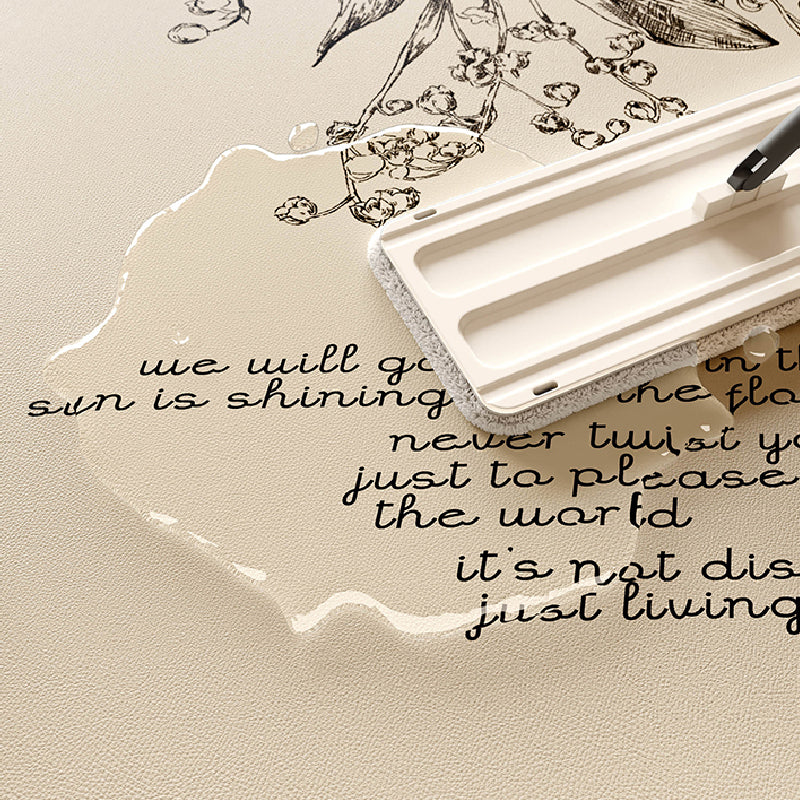 we will go in
sun is shining the
never twist
just to please
the world
it's not
just living